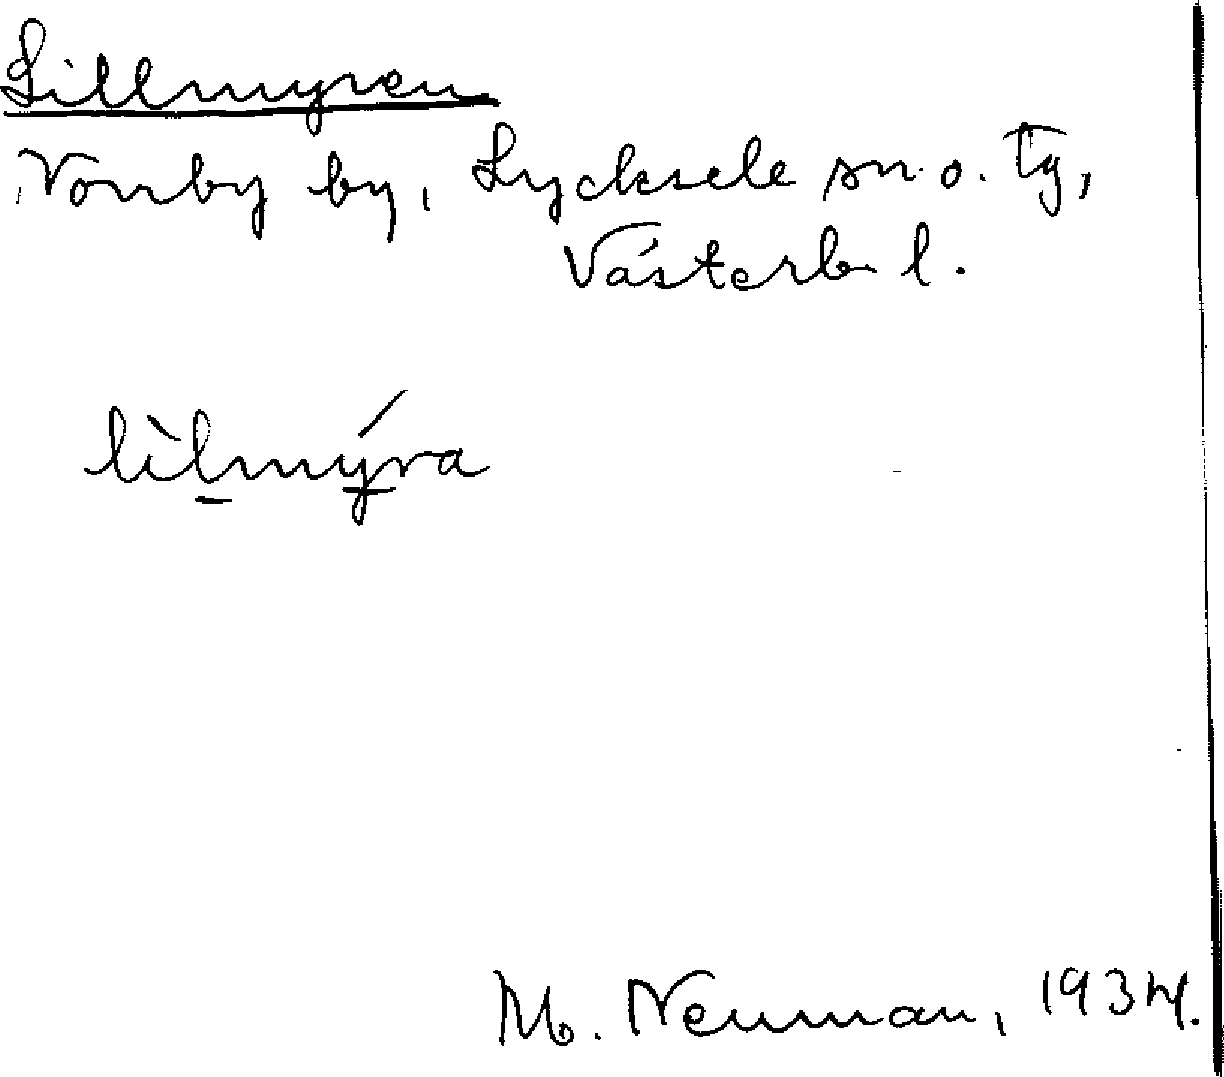 Lillmyren
Norrby by, Lycksele sn o. tg,
Västerb. l.
lìlmý̠ra
M. Neuman, 1934.